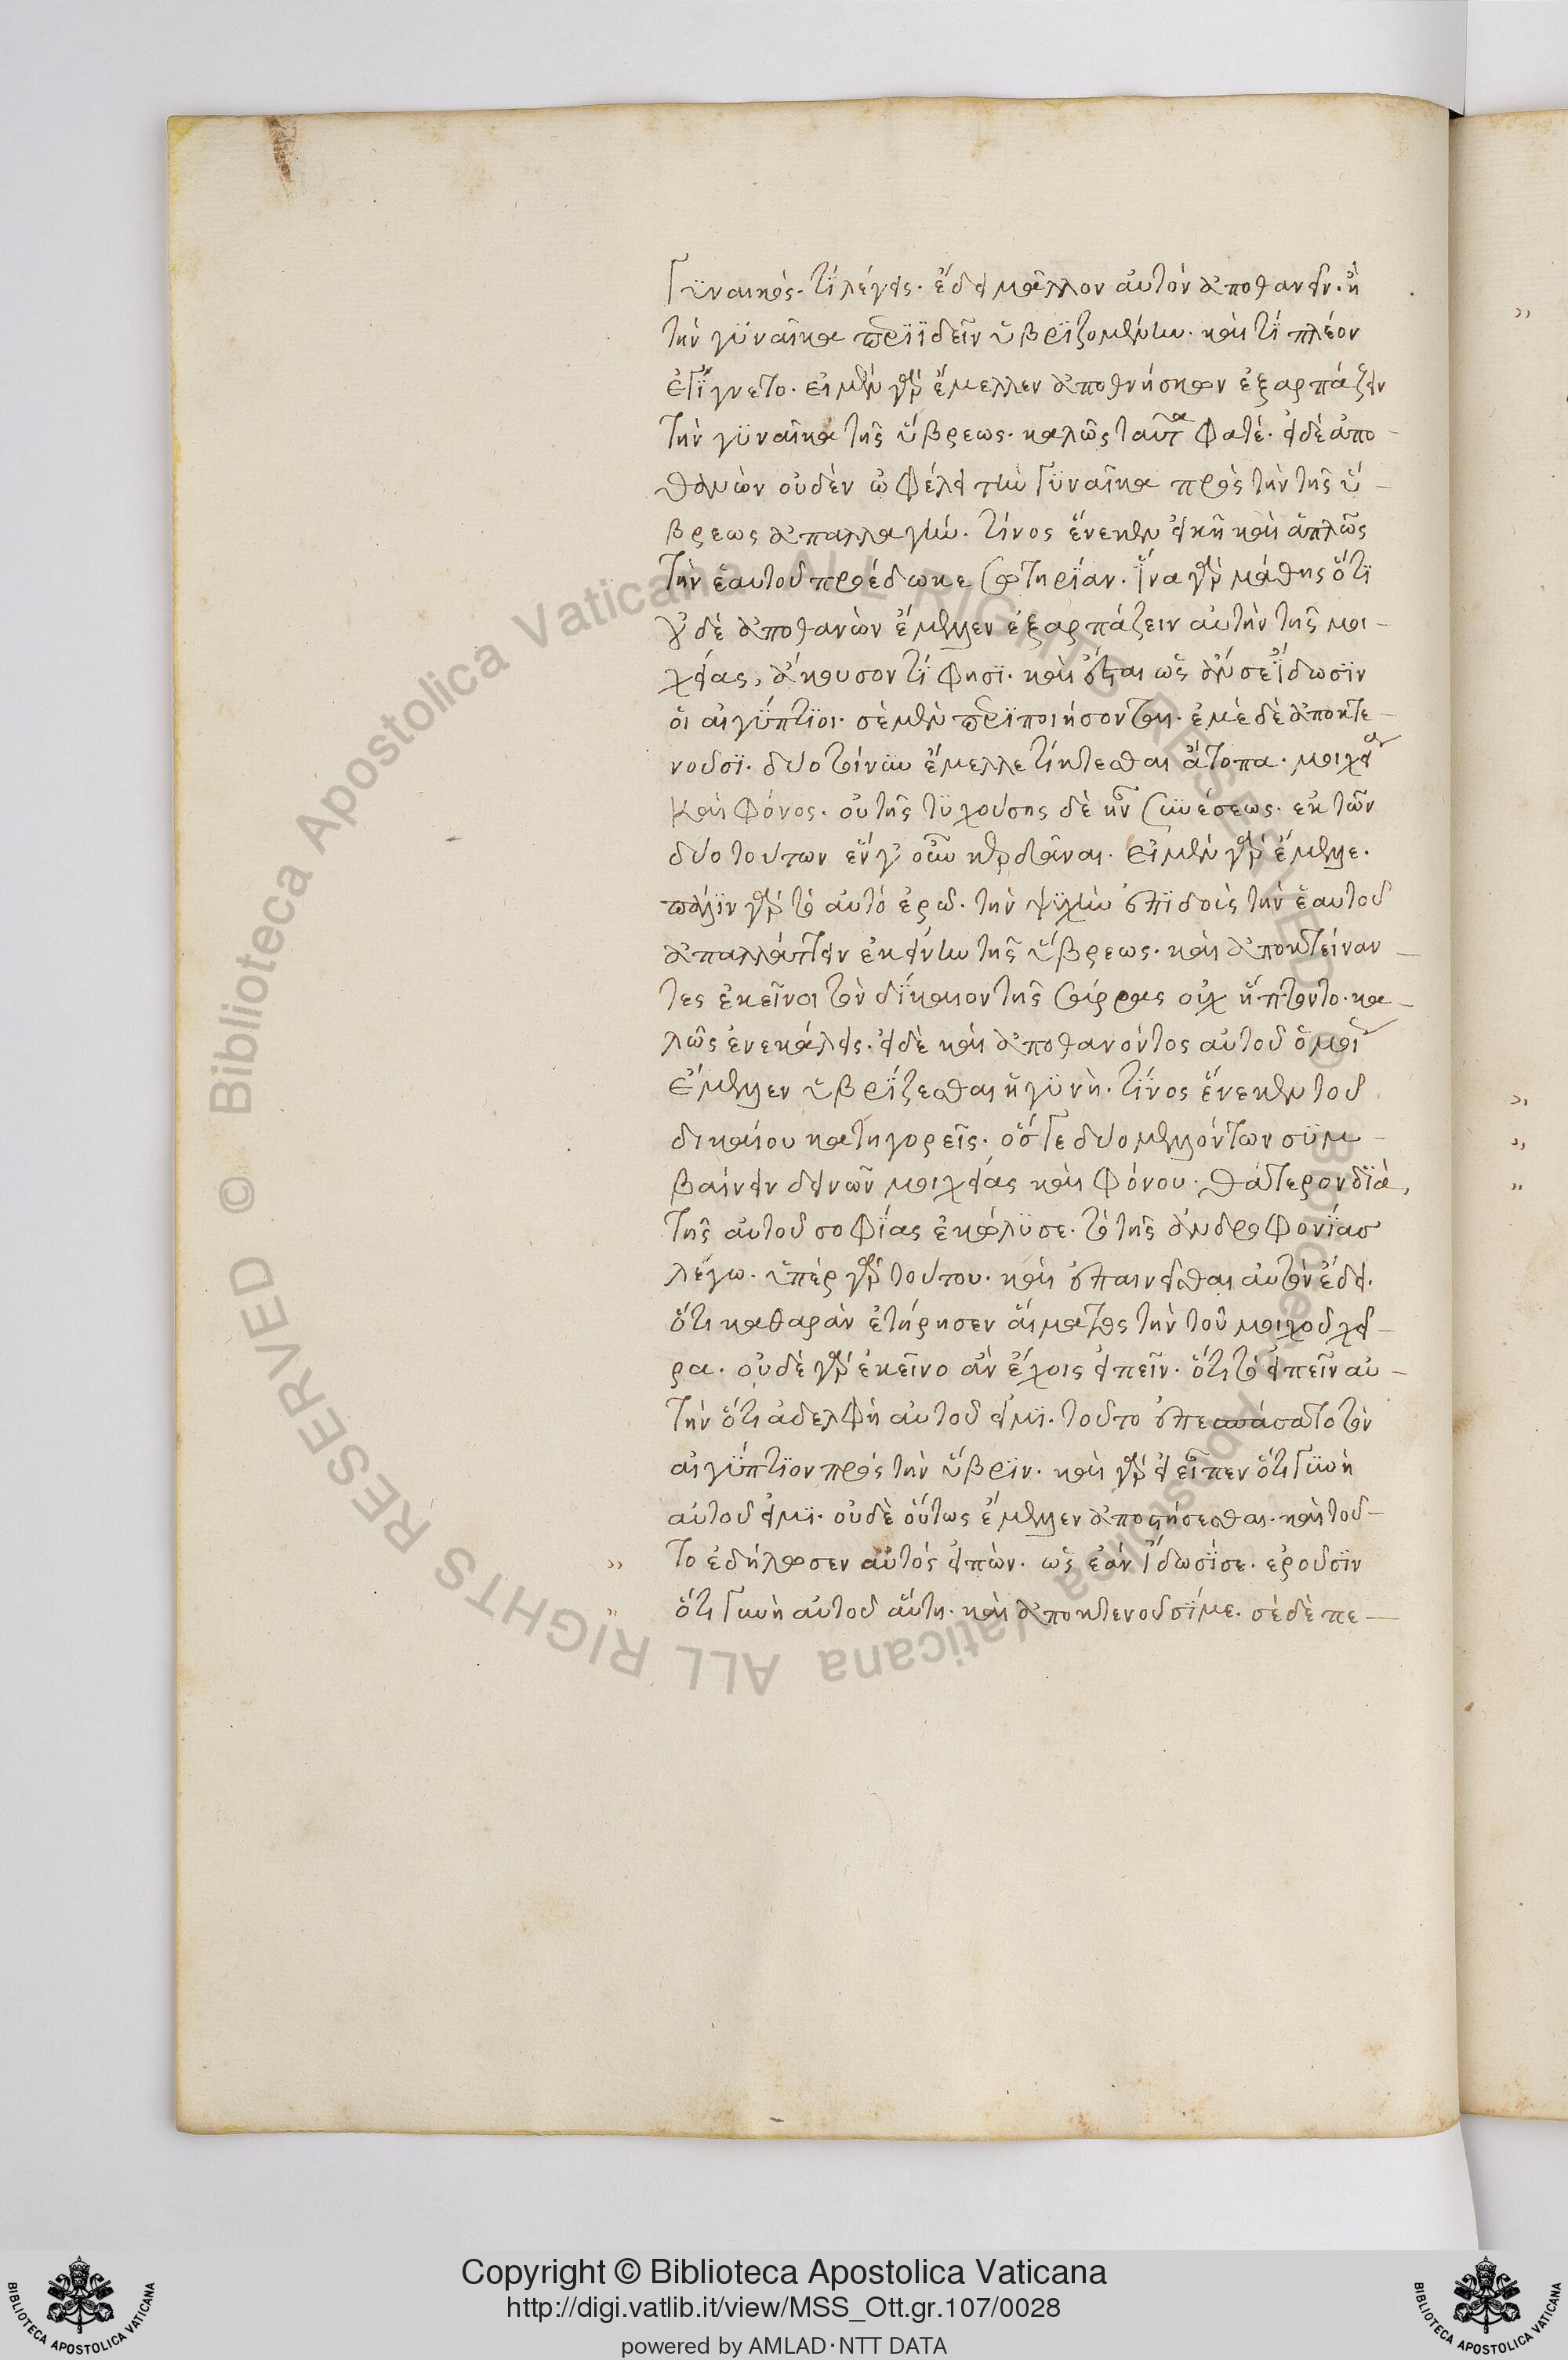 γϋναικός. τί λέγεις. ἔδει μᾶλλον αὐτὸν ἀποθανεῖν. ἢ
τὴν γϋναῖκα περιϊδεῖν ὑβριζομένην. καὶ τί πλέον
ἐγίγνετο. εἰ μὲν γὰρ ἔμελλεν ἀποθνήσκων ἐξαρπάζειν
τὴν γϋναῖκα τῆς ὕβρεως. καλῶς ταῦτα φατέ. εἰ δὲ ἀπο-
θανὼν οὐδὲν ὠφέλει τὴν γϋναῖκα πρὸς τὴν τῆς ὕ-
βρεως ἀπαλλαγήν. τίνος ἕνεκεν εἰκῆ καὶ ἁπλῶς
τὴν ἑαυτοῦ προέδωκε σωτηρίαν. ἵνα γὰρ μάθης ὅτι
οὐδὲ ἀποθανὼν ἔμελλεν ἐξαρπάζειν αὐτὴν τῆς μοι-
χείας, ἄκουσον τί φησϊ. καὶ ἔσται ὡς ἄν σε ἴδωσϊν
οἱ αἰγύπτϊοι. σὲ μὲν περιποιήσονται. ἐμὲ δὲ ἀποκτε-
νοῦσϊ. δύο τοίνυν ἔμελλε τίκτεσθαι ἄτοπα. μοιχεία
καὶ φόνος. οὐ τῆς τϋχούσης δὲ ἦν συνέσεως. ἐκ τῶν
δύο τούτων ἓν γοῦν κερδᾶναι. εἰ μὲν γὰρ ἔμελλε.
πάλϊν γὰρ τὸ αὐτὸ ἐρῶ. τὴν ψϋχὴν ἐπϊδοὺς τὴν ἑαυτοῦ
ἀπαλλάττειν ἐκείνην τῆς ὕβρεως. καὶ ἀποκτείναν-
τες ἐκεῖνοι τὸν δίκαιον τῆς σάρρας οὐχ ἥπτοντο. κα-
λῶς ἐνεκάλεις. εἰ δὲ καὶ ἀποθανόντος αὐτοῦ ὁμοίως
ἔμελλεν ὑβρίζεσθαι ἡ γϋνὴ. τίνος ἕνεκεν τοῦ
δικαίου κατηγορεῖς. ὅς γε δύο μελλόντων σϋμ-
βαίνειν δεινῶν μοιχείας καὶ φόνου. θάτερον δϊὰ
τῆς αὐτοῦ σοφίας ἐκώλϋσε. τὸ τῆς ἀνδροφονίας
λέγω. ὑπὲρ γὰρ τούτου. καὶ ἐπαινεῖσθαι αὐτὸν ἔδει.
ὅτι καθαρὰν ἐτήρησεν αἵματος τὴν τοῦ μοιχοῦ χεῖ-
ρα. οὐδὲ γὰρ ἐκεῖνο ἂν ἔχοις εἰπεῖν. ὅτι τὸ εἰπεῖν αὐ-
τὴν ὅτι ἀδελφὴ αὐτοῦ εἰμϊ. τοῦτο ἐπεσπάσατο τὸν
αἰγύπτϊον πρὸς τὴν ὕβρϊν. καὶ γὰρ εἰ εἶπεν ὅτι γϋνὴ
αὐτοῦ εἰμϊ. οὐδὲ οὕτως ἔμελλεν ἀποστήσεσθαι. καὶ τοῦ-
το ἐδήλωσεν αὐτὸς εἰπὼν. ὡς ἐὰν ἴδωσί σε. ἐροῦσϊν
ὅτι γϋνὴ αὐτοῦ αὕτη. καὶ ἀποκτενοῦσί με. σὲ δὲ πε-
Copyright © Biblioteca Apostolica Vaticana
http://digi.vatlib.it/view/MSS_Ott.gr.107/0028
powered by AMLAD·NTT DATA